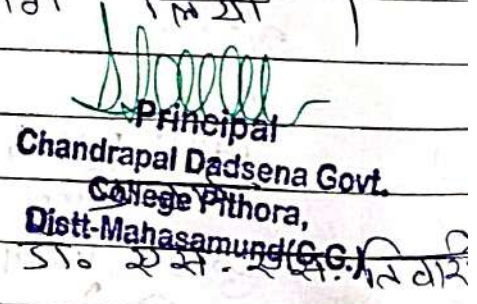 लिया ।
Principal
Chandrapal Dadsena Govt.
College Pithora,
Distt-Mahasamund(C.G.)
डा. एस. एस. तिवारी